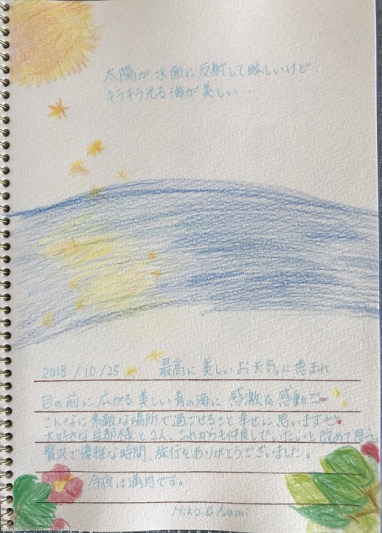 太陽が水面に反射して眩しいけど
キラキラ光る海が美しい…
2018/10/25 最高に美しいお天気に恵まれ
目の前に広がる美しい青の海に感激&感動で
こんなに素敵な場所で過ごせること幸せに思いますで
大好きな旦那様と2人、これからも仲良しでいたいと改めて思う
贅沢で優雅な時間、旅行をありがとうございました。
今夜は満月です。
Hiko & Nami